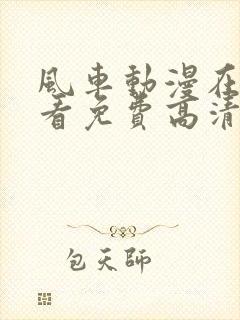 風車動漫在
看免費高清
包天師